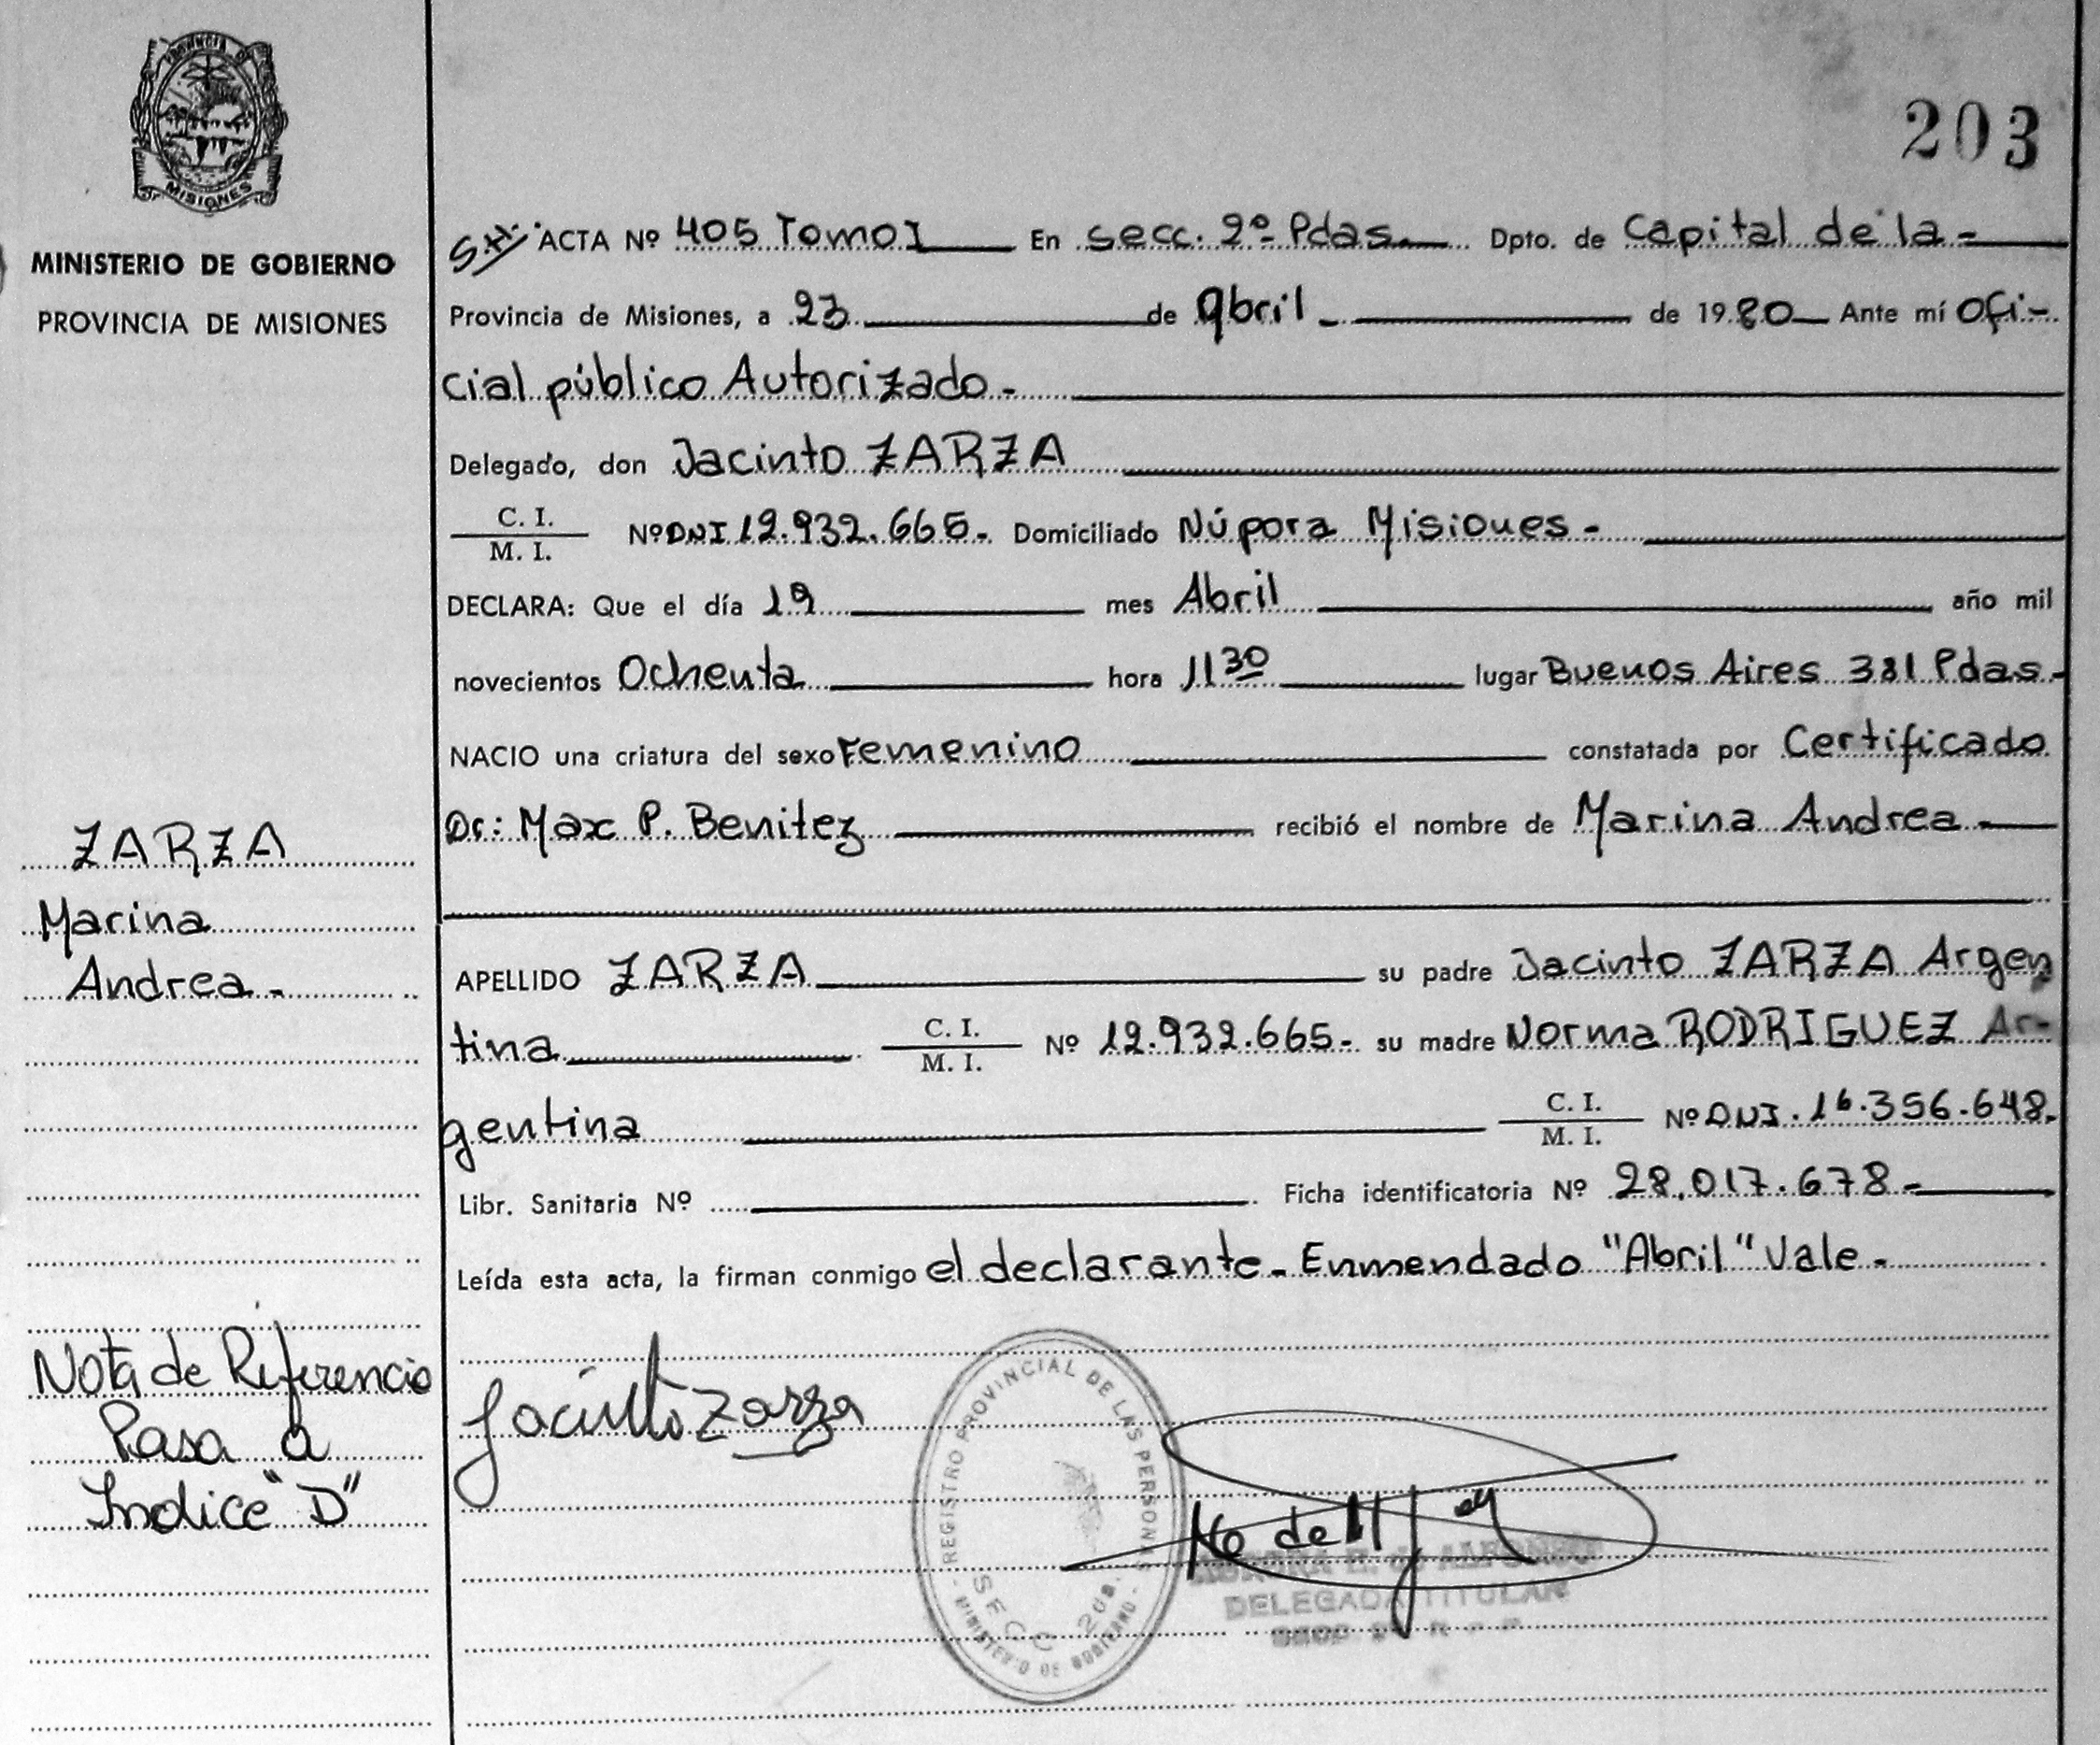 PROVINCIA DE
MISIONES
MINISTERIO DE GOBIERNO
PROVINCIA DE MISIONES
ZARZA
Marina
Andrea-
Nota de Referencia
Pasa a
Indice "D"
203
S.H. ACTA Nº 405 Tomo I En secc. 2º Pdas. Dpto. de Capital de la-
Provincia de Misiones, a 23 de abril - de 1980 Ante mí Ofi-
cial público Autorizado-
Delegado, don Jacinto ZARZA
C. I.
M. I. Nº DNI 12.932.665- Domiciliado Ñúpora Misiones-
DECLARA: Que el día 19 mes Abril año mil
novecientos Ochenta hora 11 30 lugar Buenos Aires 381 Pdas-
NACIO una criatura del sexo Femenino constatada por Certificado
Dr: Max P. Benitez recibió el nombre de Marina Andrea-
APELLIDO ZARZA su padre Jacinto ZARZA Argen
tina C. I.
M. I. Nº 12.932.665- su madre Norma RODRIGUEZ Ar-
gentina C. I.
M. I. Nº DNI. 16.356.648-
Libr. Sanitaria Nº Ficha identificatoria Nº 28.017.678-
Leída esta acta, la firman conmigo el declarante- Enmendado "Abril" Vale-
Jacinto Zarza
REGISTRO PROVINCIAL DE LAS PERSONAS
SECC 2da.
MINISTERIO DE GOBIERNO
DELEGADA TITULAR